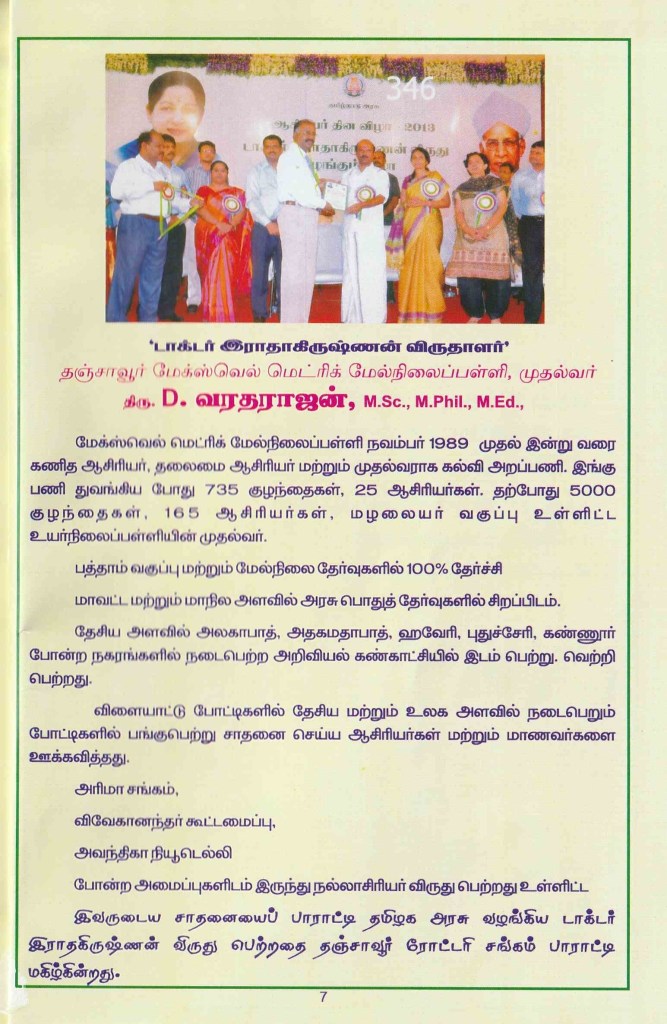 346
தமிழ்நாடு அரசு
ஆசிரியர் தின விழா - 2013
'டாக்டர் இராதாகிருஷ்ணன் விருதாளர்'
தஞ்சாவூர் மேக்ஸ்வெல் மெட்ரிக் மேல்நிலைப்பள்ளி, முதல்வர்
திரு. D. வரதராஜன், M.Sc., M.Phil., M.Ed.,
மேக்ஸ்வெல் மெட்ரிக் மேல்நிலைப்பள்ளி நவம்பர் 1989 முதல் இன்று வரை
கணித ஆசிரியர், தலைமை ஆசிரியர் மற்றும் முதல்வராக கல்வி அறப்பணி. இங்கு
பணி துவங்கிய போது 735 குழந்தைகள், 25 ஆசிரியர்கள். தற்போது 5000
குழந்தைகள், 165 ஆசிரியர்கள், மழலையர் வகுப்பு உள்ளிட்ட
உயர்நிலைப்பள்ளியின் முதல்வர்.
பத்தாம் வகுப்பு மற்றும் மேல்நிலை தேர்வுகளில் 100% தேர்ச்சி
மாவட்ட மற்றும் மாநில அளவில் அரசு பொதுத் தேர்வுகளில் சிறப்பிடம்.
தேசிய அளவில் அலகாபாத், அதகமதாபாத், ஹவேரி, புதுச்சேரி, கண்ணூர்
போன்ற நகரங்களில் நடைபெற்ற அறிவியல் கண்காட்சியில் இடம் பெற்று. வெற்றி
பெற்றது.
விளையாட்டு போட்டிகளில் தேசிய மற்றும் உலக அளவில் நடைபெறும்
போட்டிகளில் பங்குபெற்று சாதனை செய்ய ஆசிரியர்கள் மற்றும் மாணவர்களை
ஊக்கவித்தது.
அரிமா சங்கம்,
விவேகானந்தர் கூட்டமைப்பு,
அவந்திகா நியூடெல்லி
போன்ற அமைப்புகளிடம் இருந்து நல்லாசிரியர் விருது பெற்றது உள்ளிட்ட
இவருடைய சாதனையைப் பாராட்டி தமிழக அரசு வழங்கிய டாக்டர்
இராதகிருஷ்ணன் விருது பெற்றதை தஞ்சாவூர் ரோட்டரி சங்கம் பாராட்டி
மகிழ்கின்றது.
7